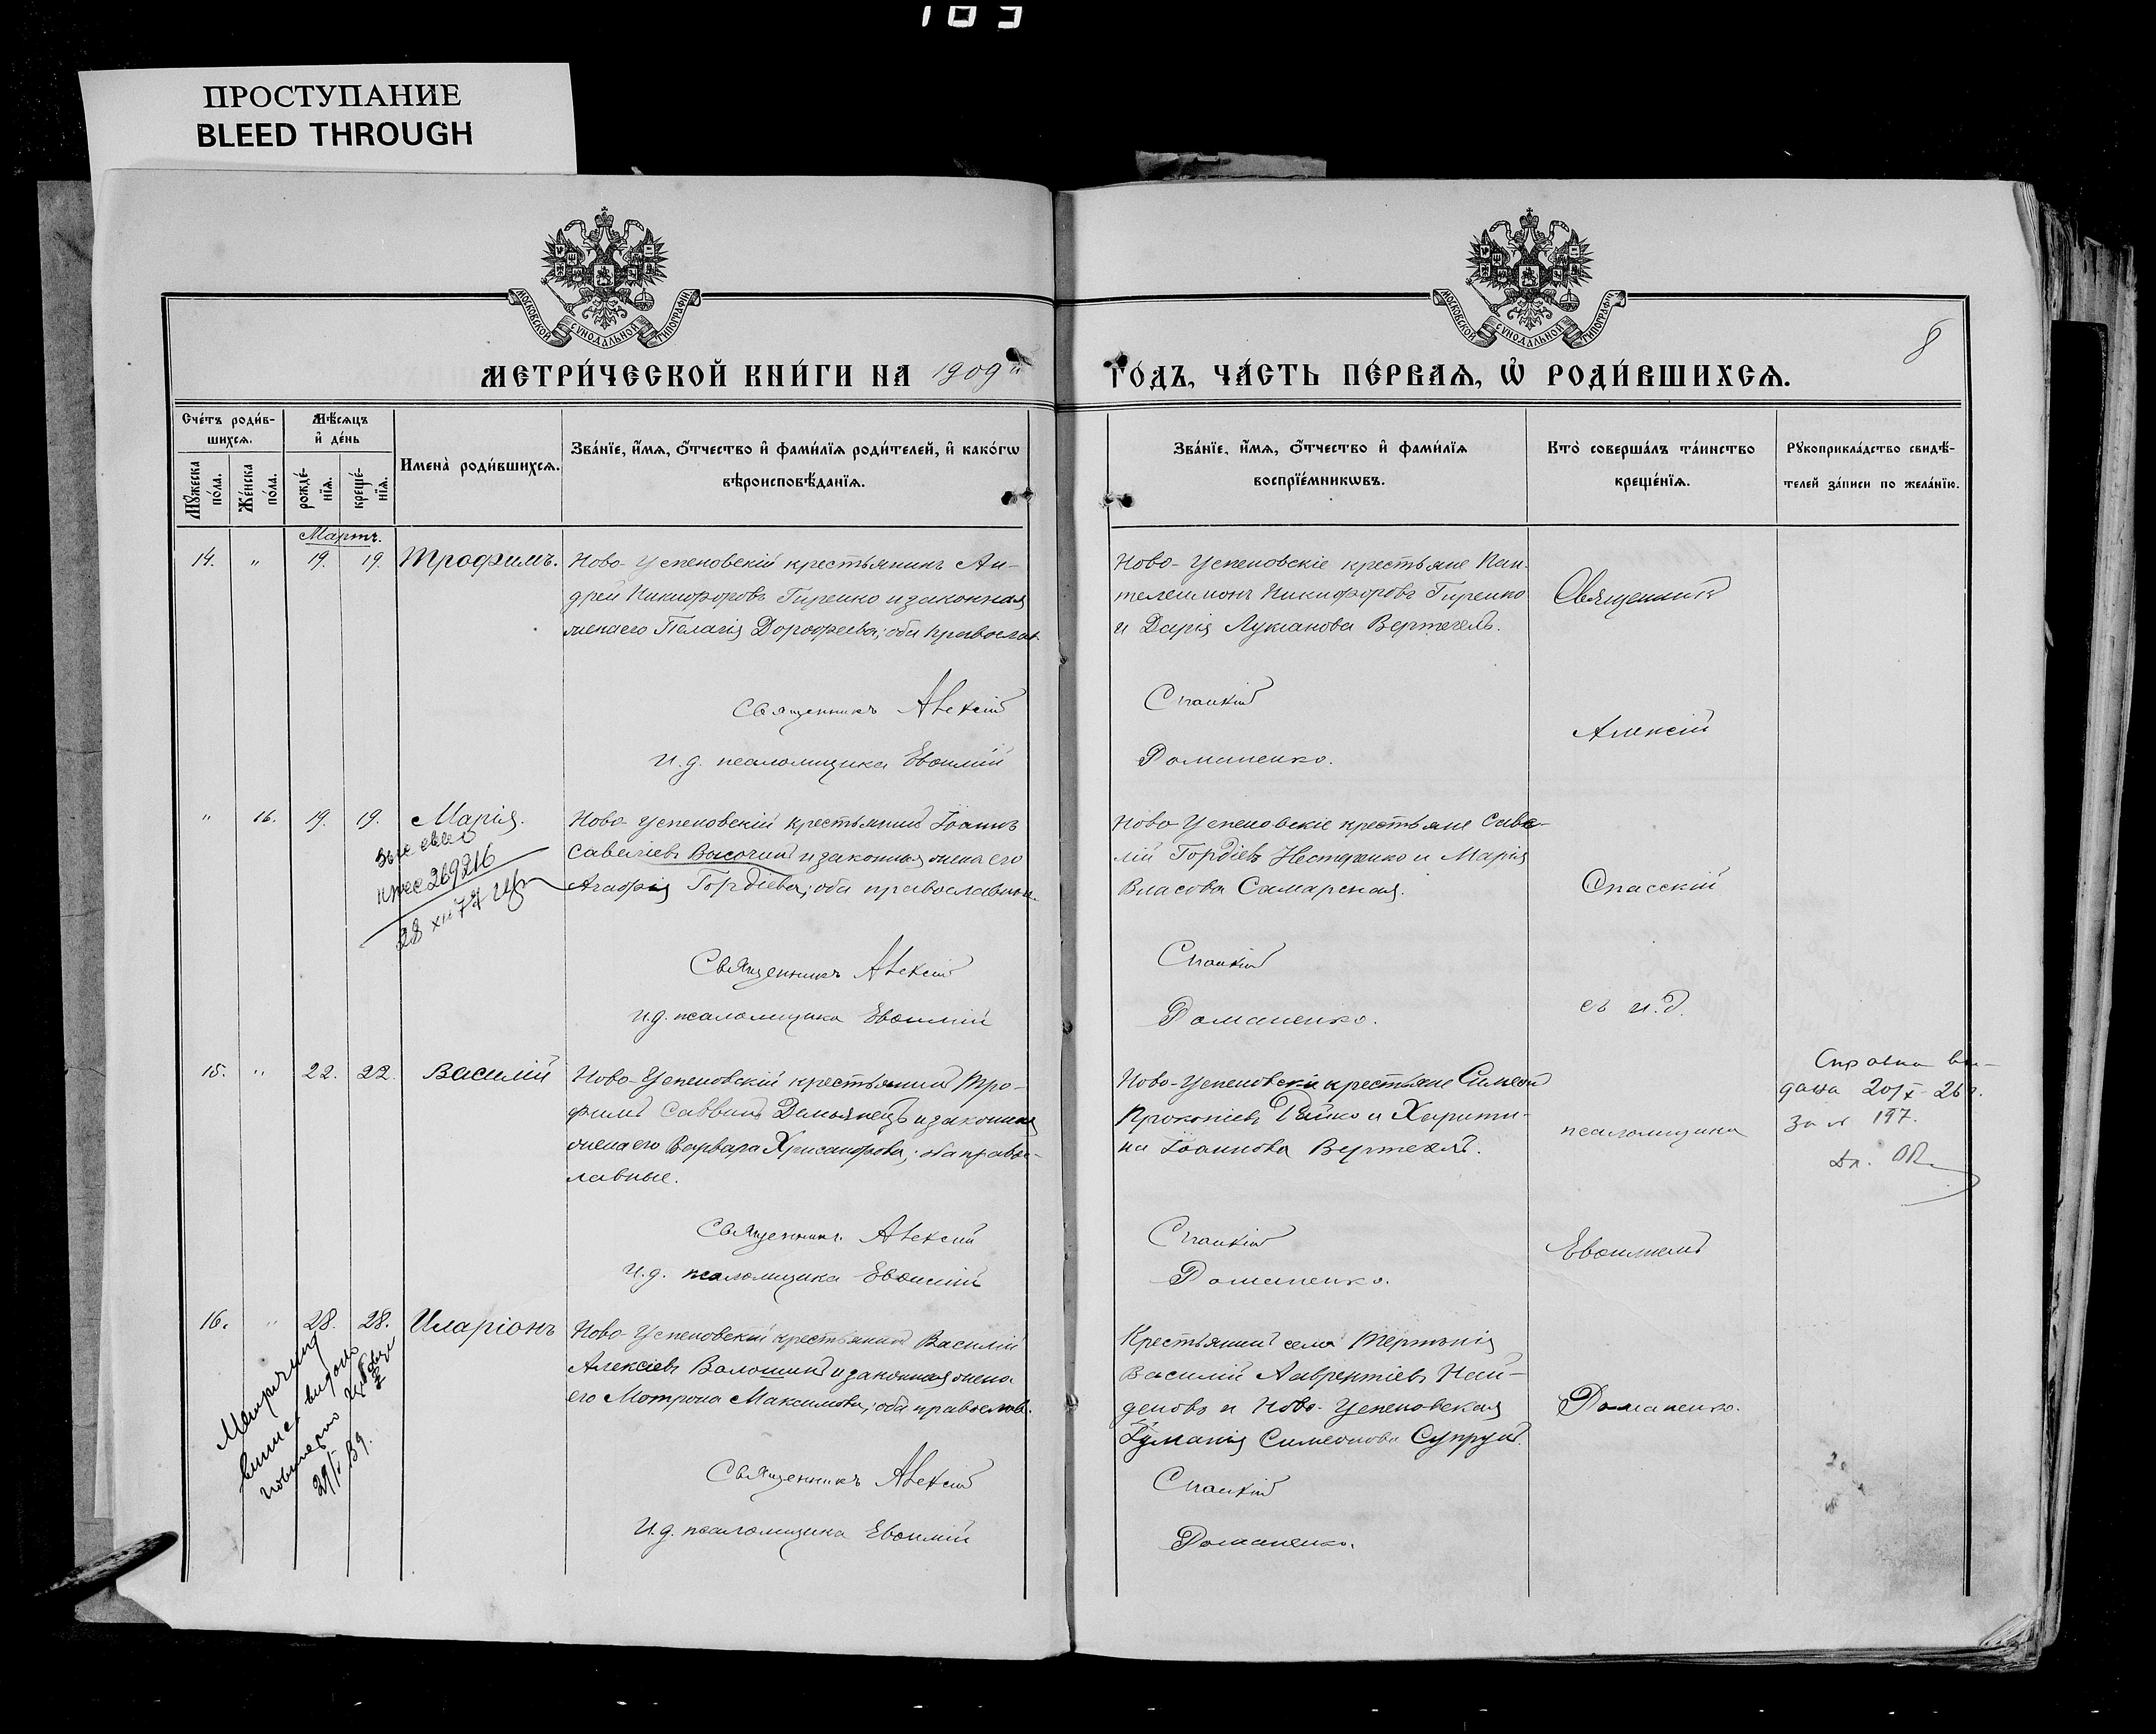 103
ПРОСТУПАНИЕ
BLEED THROUGH
МОСКОВСКОЙ СѴНОДАЛЬНОЙ ТИПОГРАФІИ
МОСКОВСКОЙ СѴНОДАЛЬНОЙ ТИПОГРАФІИ
8
МЕТРИ́ЧЕСКОЙ КНИ́ГИ НА 1909й ГО́ДЪ, ЧА́СТЬ ПЕ́РВАЯ, Ѡ҆ РОДИ́ВШИХСЯ.
Сче́тъ роди́в-
шихся.
Мꙋ́жеска по́ла.
Же́нска по́ла.
Мѣ́сяцъ
и҆ де́нь
рожде́-
нїя.
креще́-
нїя.
Имена̀ роди́вшихся.
Зва́нїе, и҆́мя, ѻ҆́тчество и҆ фами́лїя роди́телей, и҆ како́гѡ
вѣроисповѣ́данїя.
Зва́нїе, и҆́мя, ѻ҆́тчество и҆ фами́лїя
воспрїе́мникѡвъ.
Кто̀ соверша́лъ та́инство
креще́нїя.
Рꙋкоприкла́дство свидѣ́-
телей за́писи по жела́нїю.
Мартъ.
14. " 19. 19. Трофимъ.
Ново-Успеновскій крестьянинъ Ан-
дрей Никифоровъ Гиренко и законная
жена его Пелагія Дорофеева; оба православ.
Священникъ Алексій
И.д. псаломщика Евѳимій
Ново-Успеновскіе крестьяне Пан-
телеимонъ Никифоровъ Гиренко
и Дарія Лукianова Вертегелъ.
Спасскій
Доманенко.
Священникъ
Алексій
Спасскій
съ и.д.
псаломщика
Евѳиміемъ
Доманенко.
" 16. 19. 19. Марія.
269216
28 XII 77
Ново Успеновскій крестьянинъ Іоаннъ
Савеліевъ Высочинъ и законная жена его
Агафія Гордіева; оба православные.
Священникъ Алексій
И.д. псаломщика Евѳимій
Ново Успеновскіе крестьяне Саве-
лій Гордіевъ Нестеренко и Марія
Власова Самарская.
Спасскій
Доманенко.
15. " 22. 22. Василій
Ново-Успеновскій крестьянинъ Тро-
фимъ Саввинъ Демьянецъ и законная
жена его Варвара Хрисанфова; оба правос-
лавные.
Священникъ Алексій
И.д. псаломщика Евѳимій
Ново-Успеновскіе крестьяне Симеонъ
Прокопіевъ Рейко и Харити-
на Іоаннова Вертегелъ.
Спасскій
Доманенко.
Справка вы-
дана 20/X-26г.
за № 197.
16. " 28. 28. Иларіонъ
Метричний
випис видано
повторно
29/I 39.
Ново-Успеновскій крестьянинъ Василій
Алексіевъ Волошинъ и законная жена
его Мотрона Максимова; оба православ.
Священникъ Алексій
И.д. псаломщика Евѳимій
Крестьянинъ села Терпенія
Василій Лаврентіевъ Най-
деновъ и Ново-Успеновская
Іуліанія Симеонова Супрунъ.
Спасскій
Доманенко.